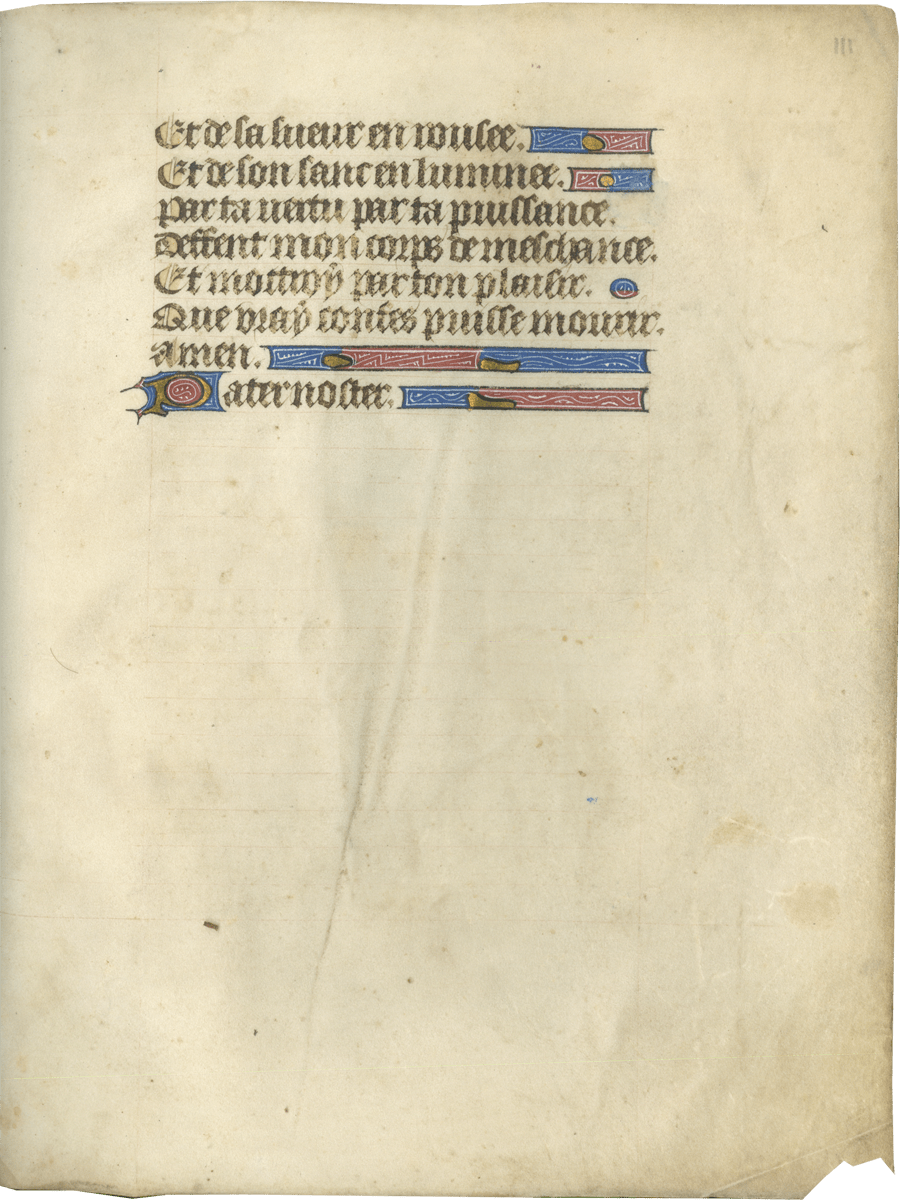 Et de sa sueur en rousee.
Et de son sanc enluminee.
Par ta vertu par ta puissance.
Deffent mon corps de meschance.
Et mottroy par ton plaisir.
Que vray confes puisse mourir.
amen.
Pater noster.